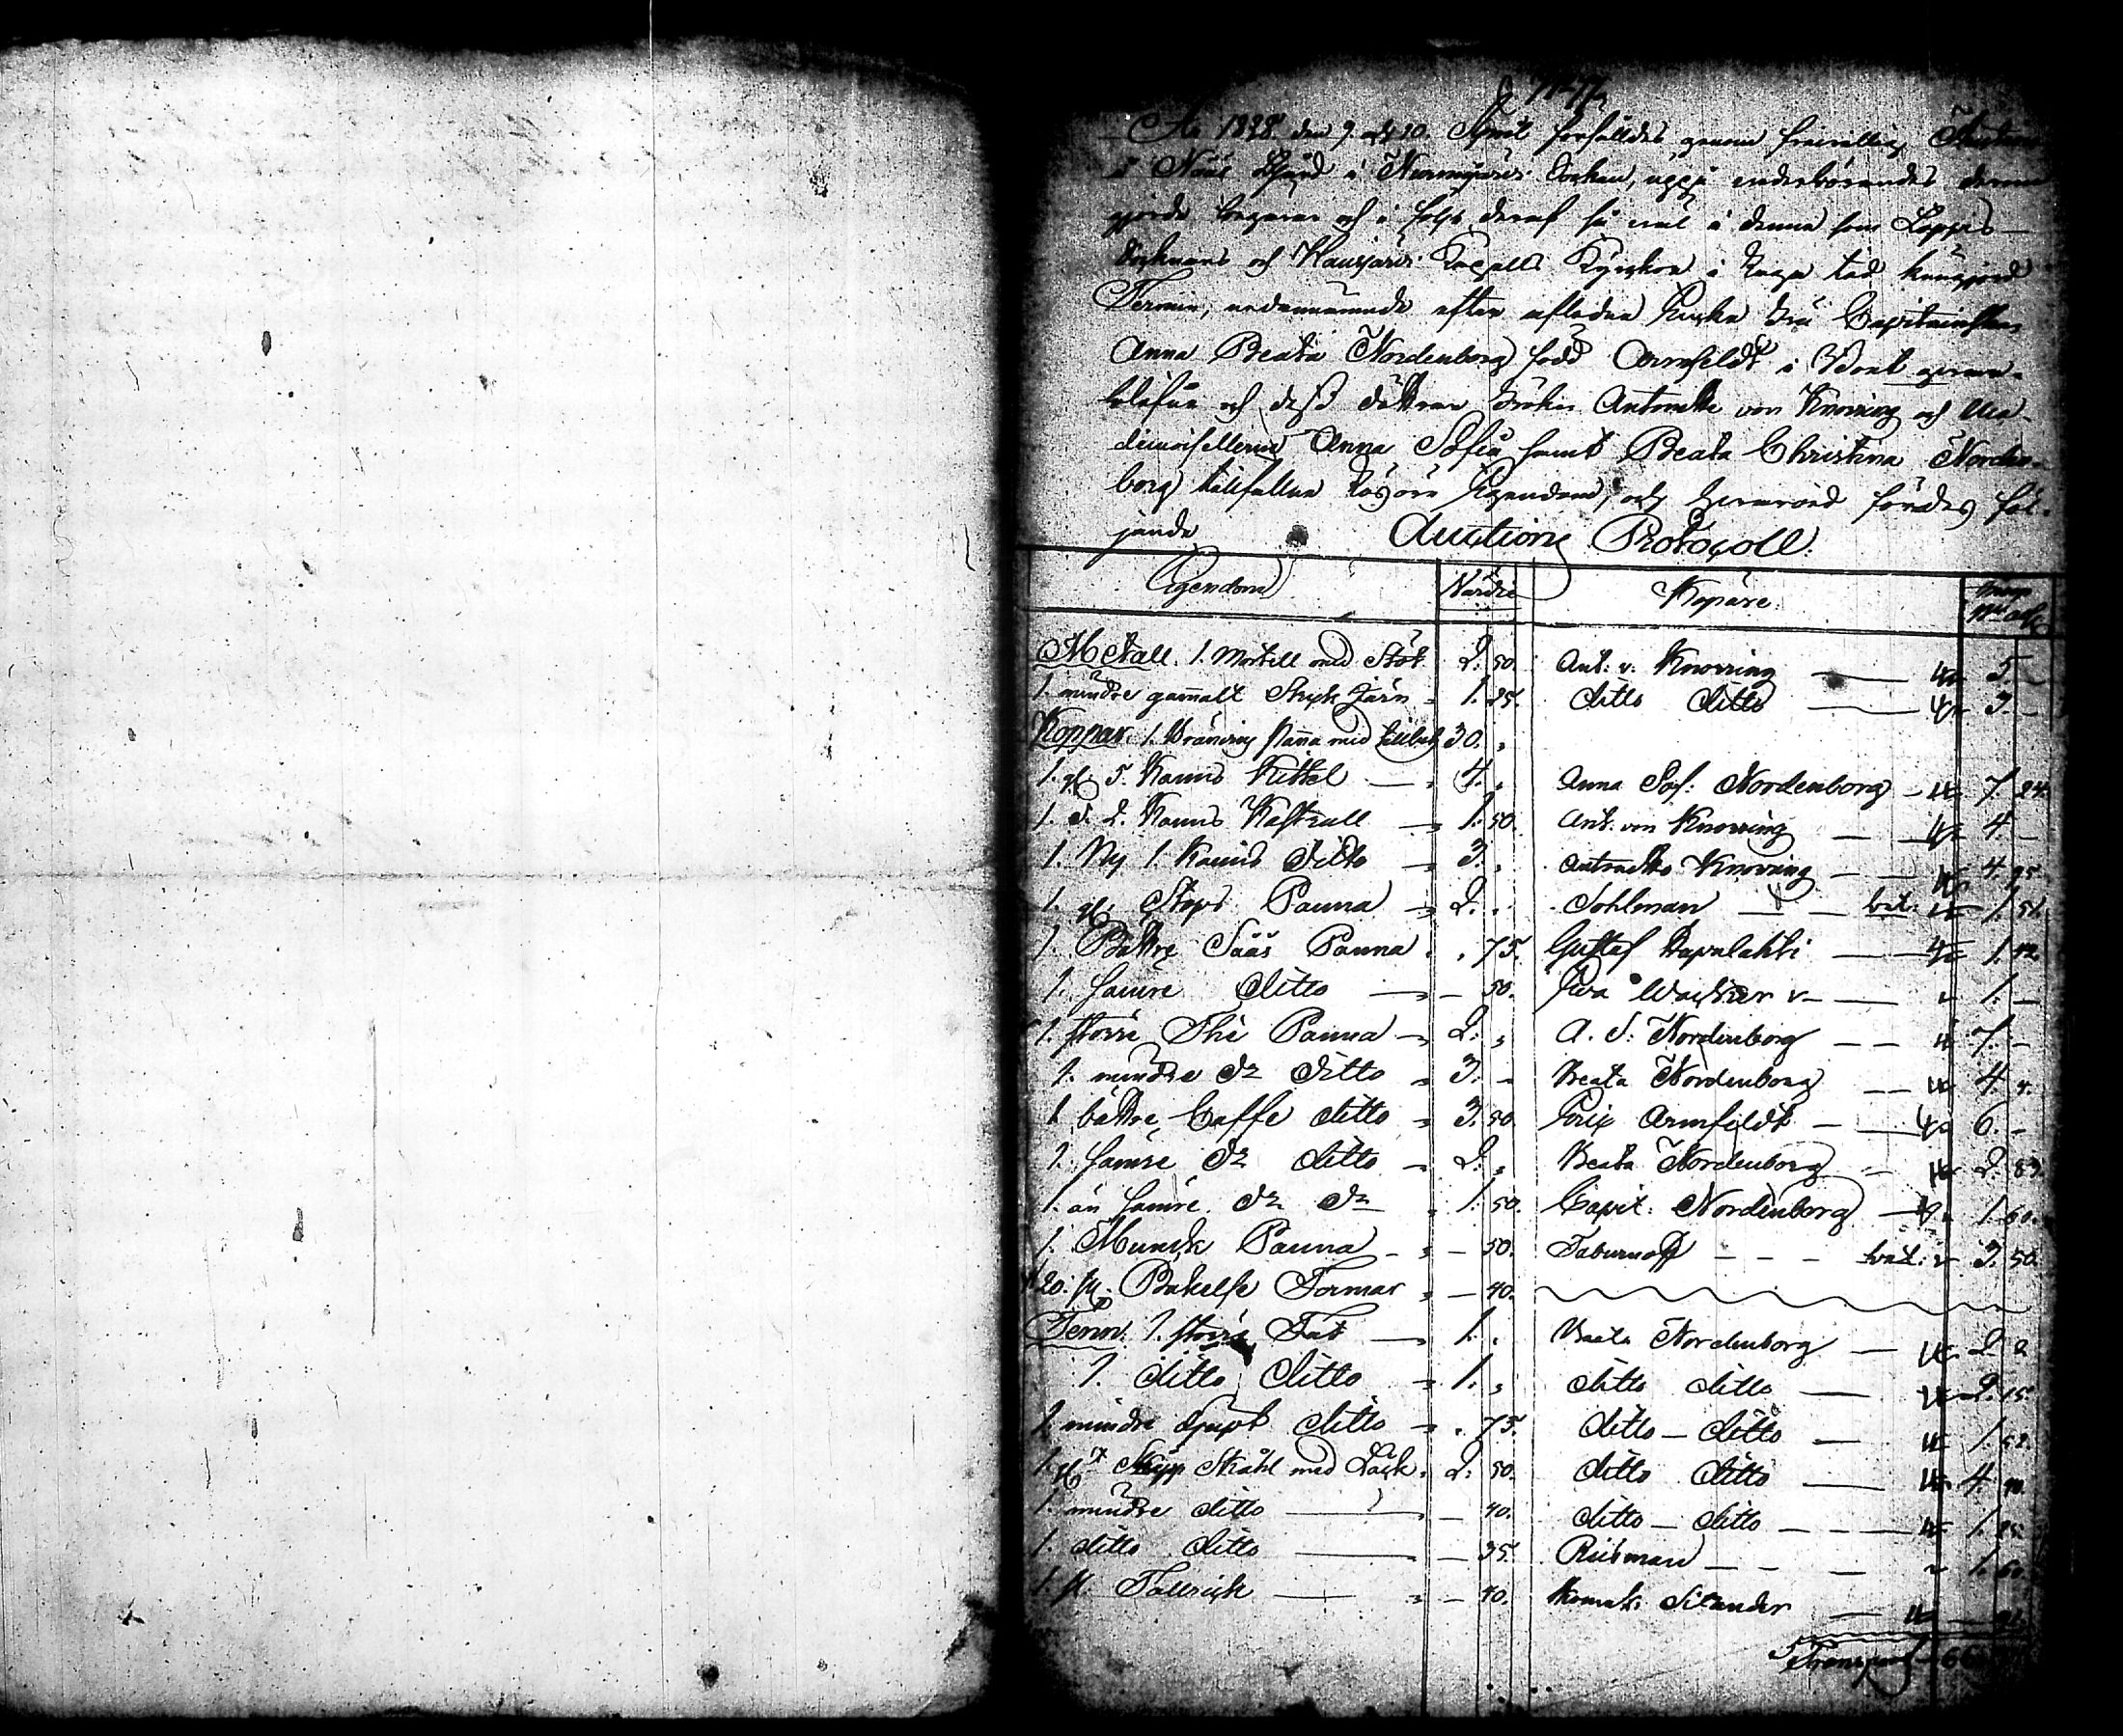 År 1828 den 9 och 10 April försåldes genom frivillig Auction
å Näs Gård i Nurmijärvi Socken, uppå vederbörandes derom
gjorde begäran och i följe deraf så väl i denna som Loppis
Socknars och Hausjärvi Capells Kyrckor i laga tid kungjord
Termin, nedannämnde efter aflidna Enke Fru Capitainskan
Anna Beata Nordenborg född Armfeldt i Boet
och dess döttrar Fröken Antonette von Knorring och Ma-
dmoisellerne Anna Sofia samt Beata Christina Norden-
borg tillfallne lösöre Egendom, och hervid fördes föl-
jande Auctions Protocoll.
Egendom Värde Köpare
Metall. 1. Mortell med Stöt 2. 50. Ant: v: Knorring 5. -
1. mindre gammalt Stryk Järn 1. 25. ditto ditto 3. -
Koppar. 1. Bränvins Panna med tillbeh 30. "
1. gl 5. Kanns Kittel 4. " Anna Sof: Nordenborg 7. 24.
1. d. 2. Kanns Kastrull 1. 50. Ant: von Knorring 4. -
1. Ny 1. Kanns ditto 3. " Antonette Knorring 4. 95.
1. gl Stops Panna 2. " Sohlman bet: 1. 51.
1. Bättre Såås Panna " 75. Gustaf 1. 12.
1. sämre ditto - 50. 1. -
1. större The Panna 2. " A. S. Nordenborg 7. -
1. mindre do ditto 3. - Beata Nordenborg 4. 4.
1 bättre Caffe ditto 3. 50. Armfeldt 6. -
1. sämre do ditto 2. " Beata Nordenborg 2. 83.
1. än sämre do do 1. 50. Capit: Nordenborg 1. 60.
1. Munck Panna - 50. Taburnoff bet: 3. 50.
20. st. Bakelse Formar - 40.
Tenn. 1. större Fat 1. " Beata Nordenborg 2. 2
1. ditto ditto 1. " ditto ditto 2. 15.
1 mindre djupt ditto " 75. ditto - ditto 1. 52.
1. gl Skåhl med Låck 2. 50. ditto ditto 4. 90.
1. mindre ditto - 40. ditto - ditto 1. 25.
1. ditto ditto - 35. Riisman 1. 60.
1. st Tallrick - 40. Silander
Transport 66